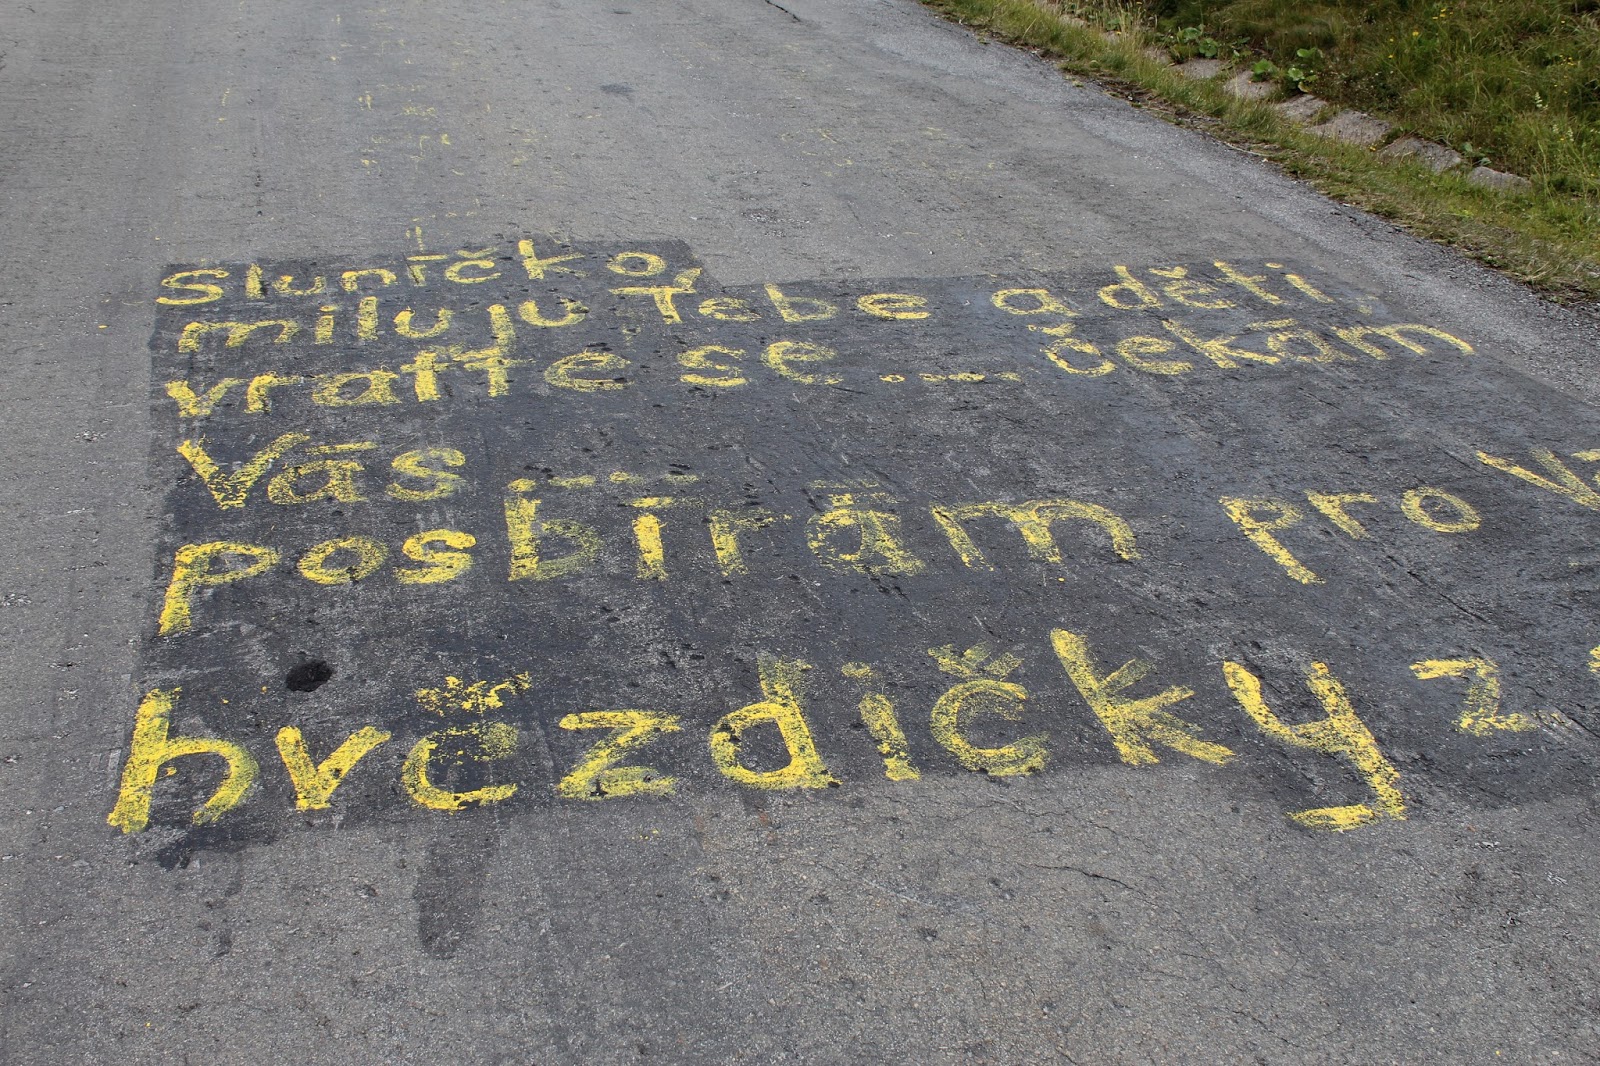 Sluníčko,
miluju Tebe a děti,
vraťte se... čekám
Vás
posbírám pro
hvězdičky z